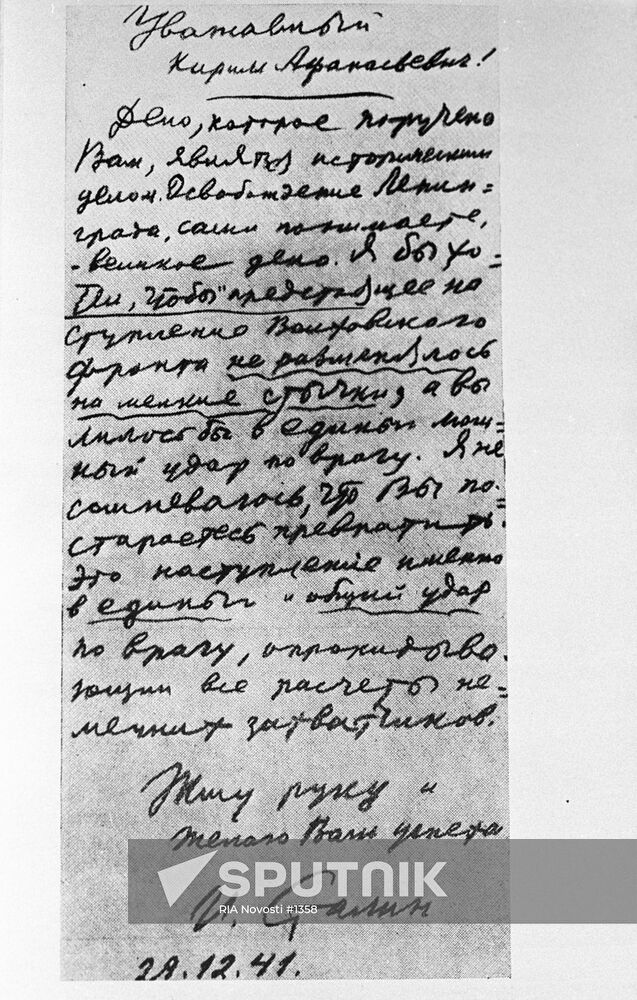 Уважаемый
Кирилл Афанасьевич!
Дело, которое поручено
Вам, является историческим
делом. Освобождение Ленин=
града, сами понимаете,
- великое дело. Я бы хо=
тел, чтобы предстоящее на
ступление Волховского
фронта не разменялось
на мелкие стычки, а вы
лилось бы в единый мощ=
ный удар по врагу. Я не
сомневаюсь, что Вы по=
стараетесь превратить
это наступление именно
в единый и общий удар
по врагу, опрокидыва
ющий все расчеты не=
мецких захватчиков.
Жму руку и
желаю Вам успеха
SPUTNIK
RIA Novosti #1358
И. Сталин
29.12.41.